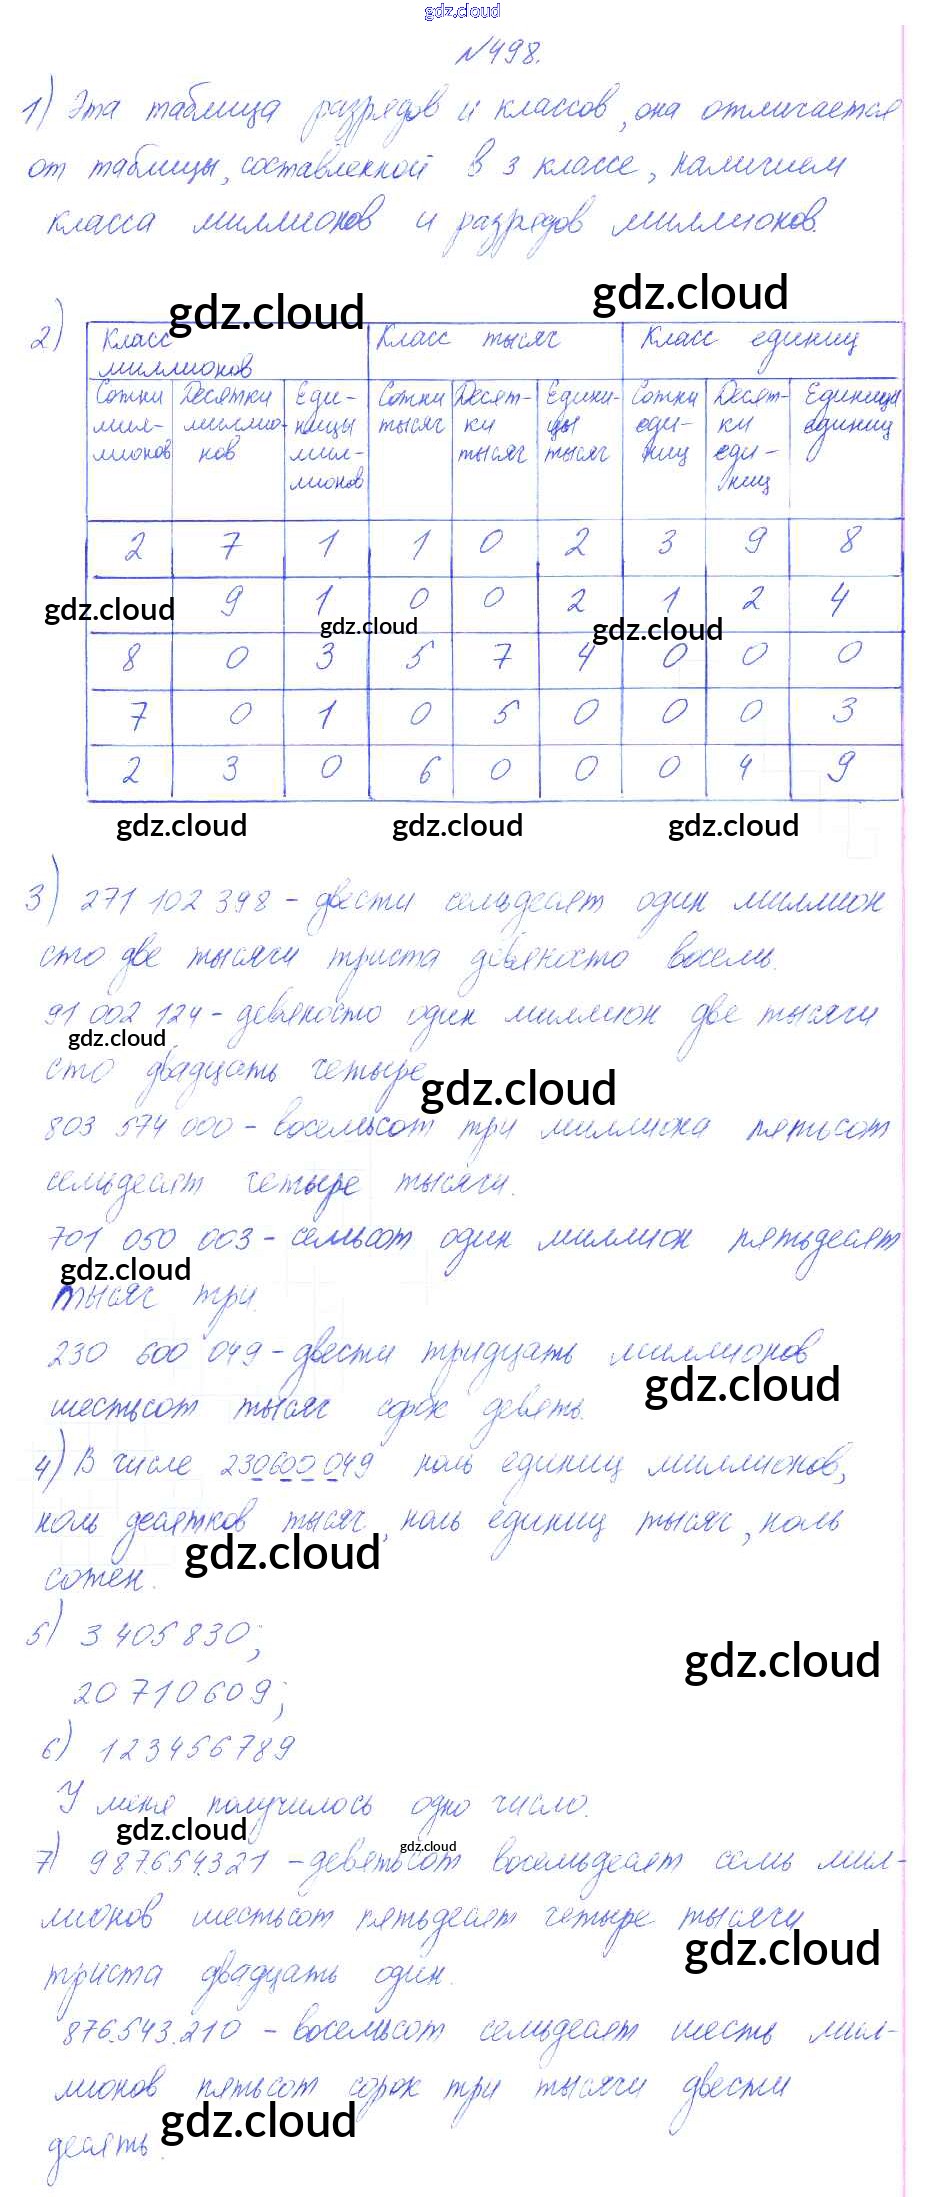 gdz.cloud
№498.
1) Эта таблица разрядов и классов, она отличается
от таблицы, составленной в 3 классе, наличием
класса миллионов и разрядов миллионов.
gdz.cloud gdz.cloud
2) Класс миллионов Класс тысяч Класс единиц
Сотни миллионов Десятки миллионов Единицы миллионов Сотни тысяч Десятки тысяч Единицы тысяч Сотни единиц Десятки единиц Единицы единиц
2 7 1 1 0 2 3 9 8
9 1 0 0 2 1 2 4
gdz.cloud gdz.cloud gdz.cloud
8 0 3 5 7 4 0 0 0
7 0 1 0 5 0 0 0 3
2 3 0 6 0 0 0 4 9
gdz.cloud gdz.cloud gdz.cloud
3) 271 102 398 - двести семьдесят один миллион
сто две тысячи триста девяносто восемь.
91 002 124 - девяносто один миллион две тысячи
gdz.cloud
сто двадцать четыре
gdz.cloud
803 574 000 - восемьсот три миллиона пятьсот
семьдесят четыре тысячи.
701 050 003 - семьсот один миллион пятьдесят
gdz.cloud
тысяч три.
230 600 049 - двести тридцать миллионов
gdz.cloud
шестьсот тысяч сорок девять.
4) В числе 230600049 ноль единиц миллионов,
ноль десятков тысяч, ноль единиц тысяч, ноль
gdz.cloud
сотен.
5) 3 405 830;
gdz.cloud
20 710 609;
6) 123456789
У меня получилось одно число.
gdz.cloud gdz.cloud
7) 987.654.321 - девятьсот восемьдесят семь мил-
лионов шестьсот пятьдесят четыре тысячи
gdz.cloud
триста двадцать один.
876.543.210 - восемьсот семьдесят шесть мил-
лионов пятьсот сорок три тысячи двести
gdz.cloud
десять.